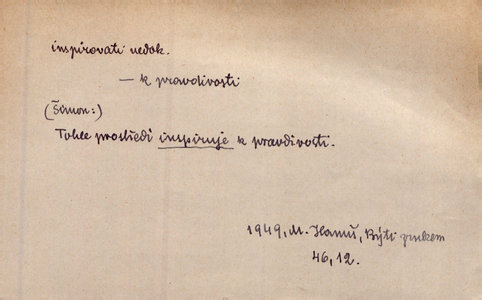 inspirovati nedok.
— k pravdivosti
(Šimon:)
Tohle prostředí inspiruje k pravdivosti.
1949, M. Hanuš, Býti prvkem
46, 12.